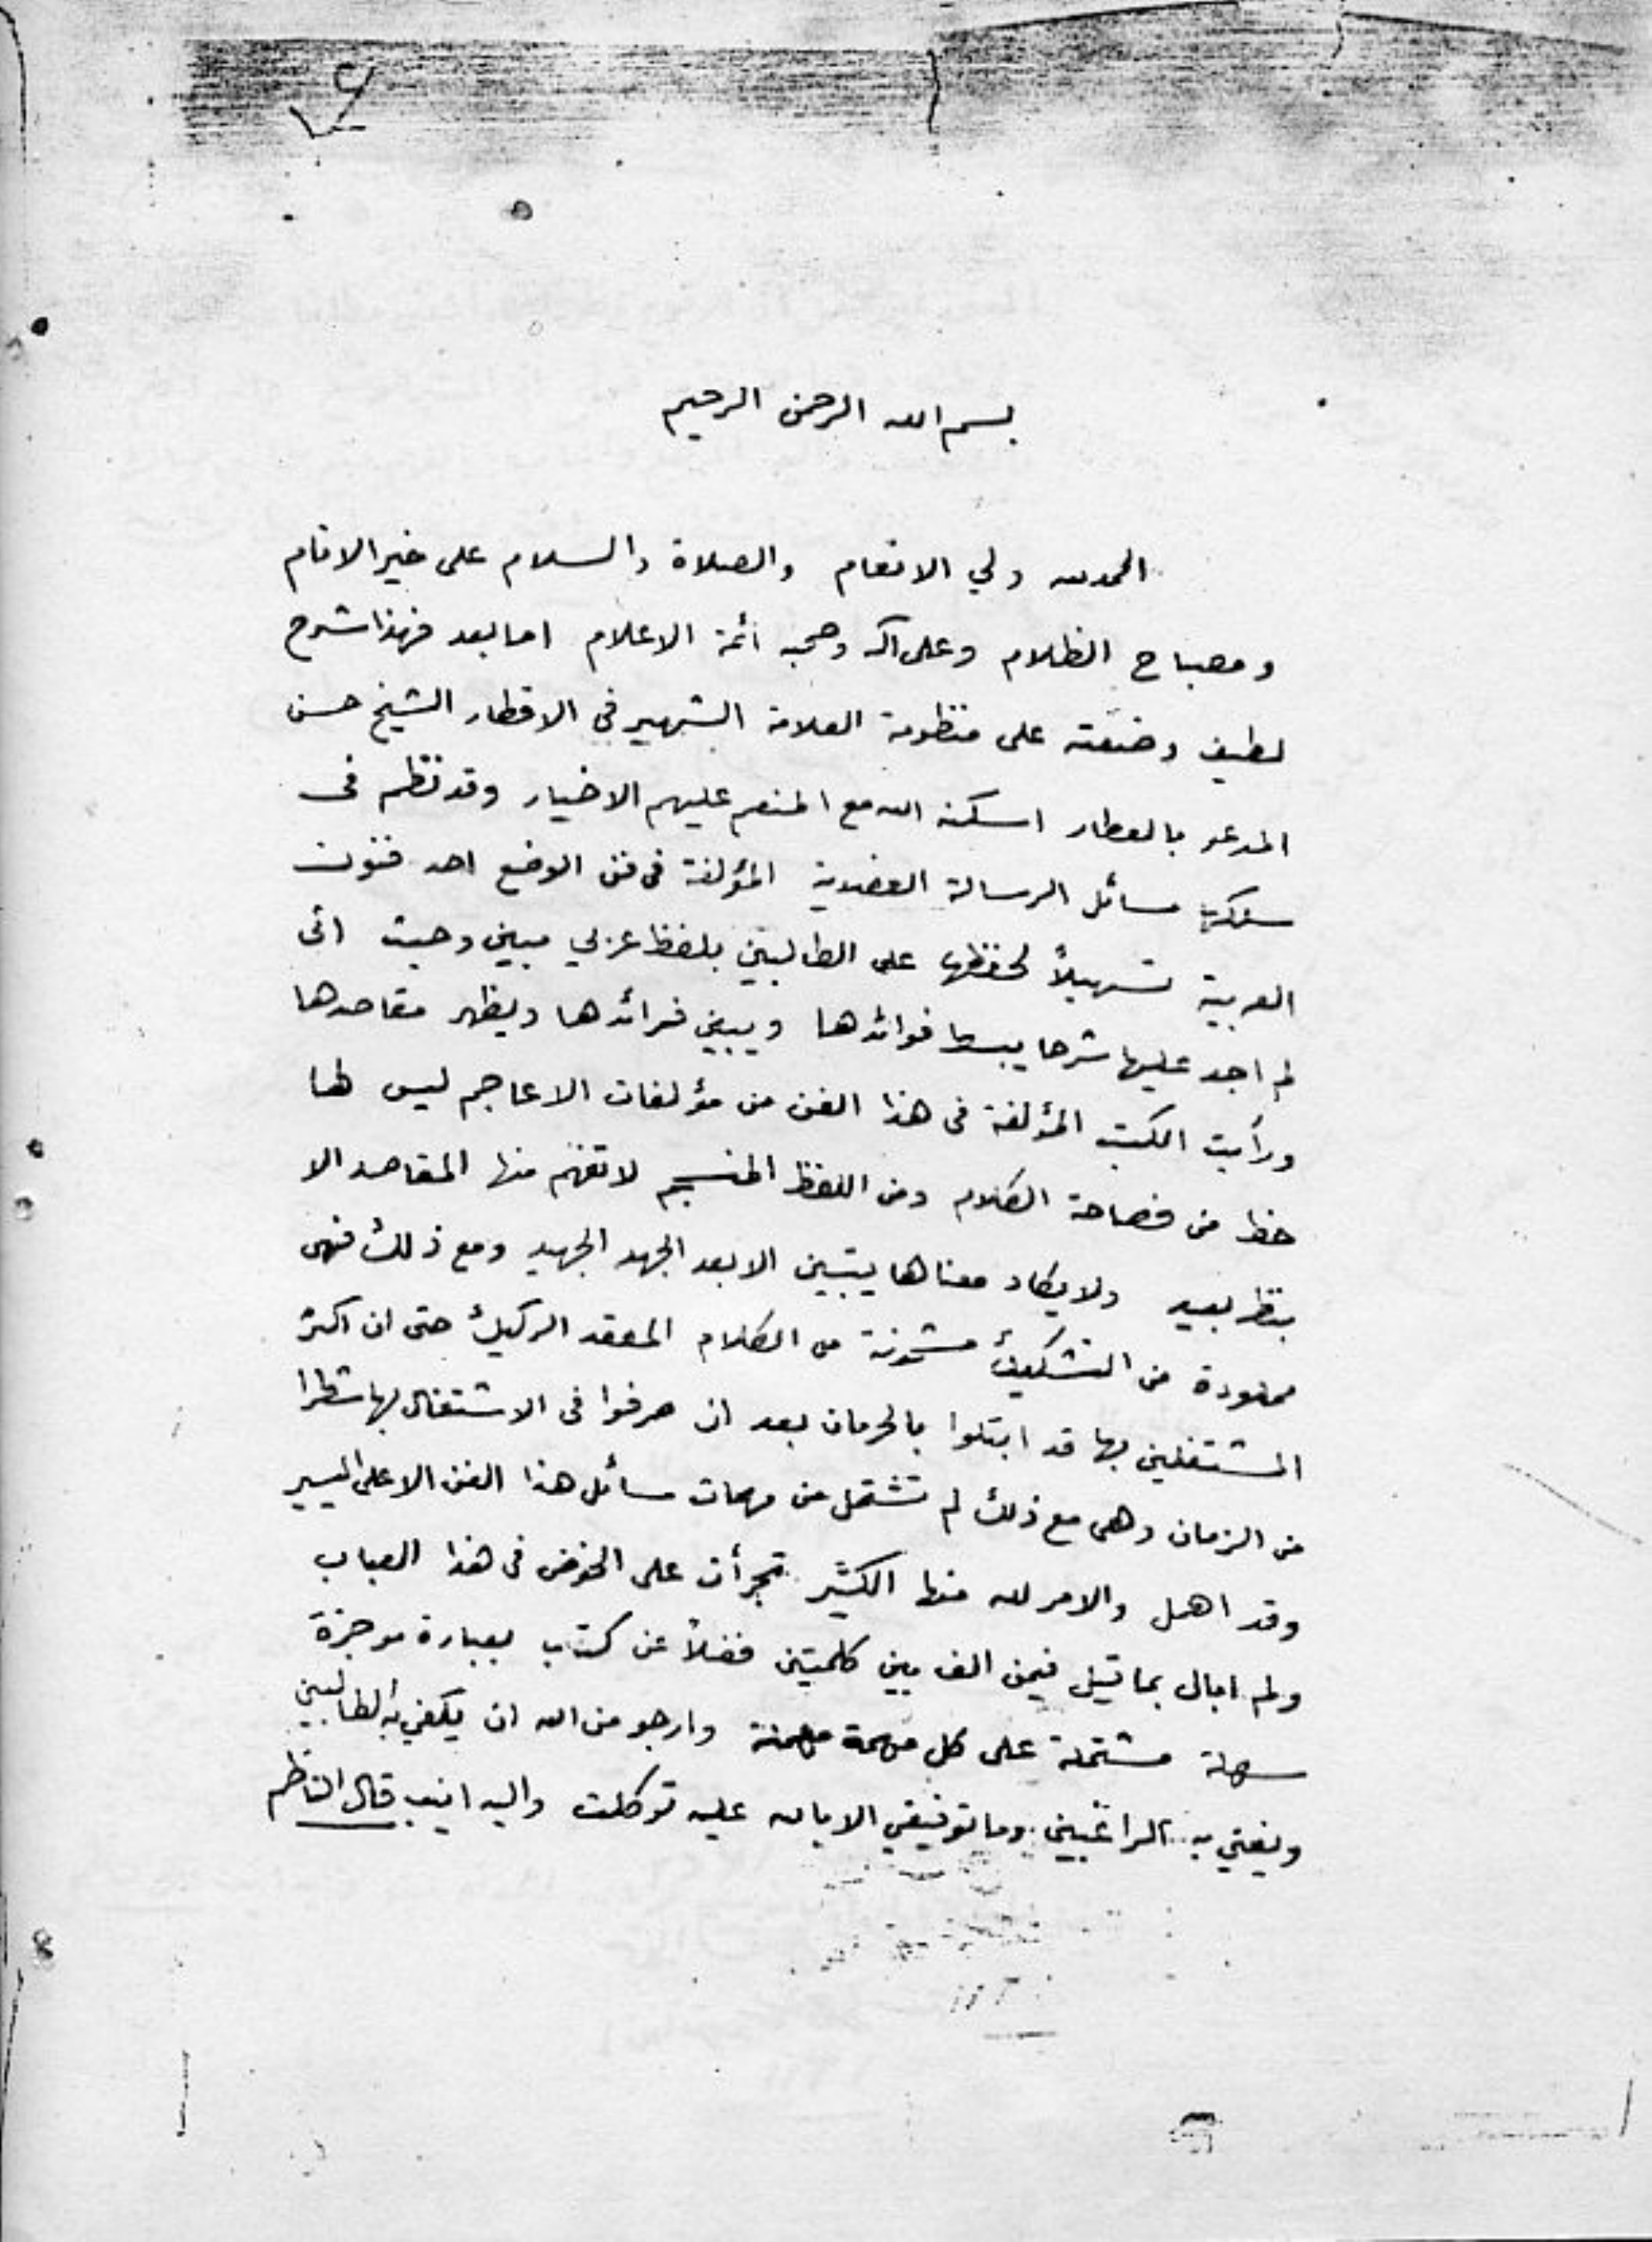 بسم الله الرحمن الرحيم
الحمد لله ولي الانعام والصلاة والسلام على خير الانام
ومصباح الظلام وعلى آله وصحبه أئمة الاعلام اما بعد فهذا شرح
لطيف وضعته على منظومة العلامة الشهير في الاقطار الشيخ حسن
المدعو بالعطار اسكنه الله مع المنعم عليهم الاخيار وقد نظم في
سلكها مسائل الرسالة العضدية المؤلفة في فن الوضع احد فنون
العربية تسهيلاً لحفظها على الطالبين بلفظ عربي مبين وحيث انى
لم اجد عليها شرحا يبسط فوائدها ويبين فرائدها ويظهر مقاصدها
ورأيت الكتب المؤلفة في هذا الفن من مؤلفات الاعاجم ليس لها
حظ من فصاحة الكلام ومن اللفظ المنسجم لا تفهم منها المقاصد الا
بنظر بعيد ولا يكاد معناها يتبين الا بعد الجهد الجهيد ومع ذلك فهى
مملوءة من التشكيك مشحونة من الكلام المعقد الركيك حتى ان اكثر
المشتغلين بها قد ابتلوا بالحرمان بعد ان صرفوا فى الاشتغال بها شطرا
من الزمان وهى مع ذلك لم تشتمل من مهمات مسائل هذا الفن الا على اليسير
وقد اهمل والامر لله منها الكثير تجرأت على الخوض فى هذا العباب
ولم ابال بما قيل فيمن الف بين كلمتين فضلاً عن كتاب بعبارة موجزة
سهلة مشتملة على كل مهمة وارجو من الله ان يكفي به الطالبين
ويغني به الراغبين وما توفيقي الا بالله عليه توكلت واليه انيب قال الناظم